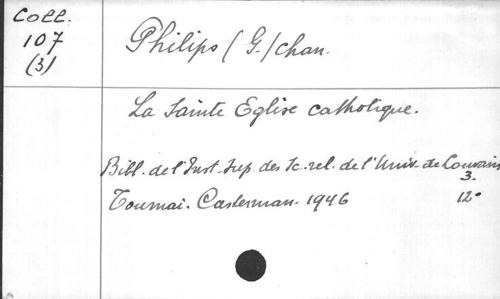 Coll.
107
(3)
Philips (G.) chan.
La Sainte Eglise catholique.
Bibl. de l'Inst. Sup. des Sc. rel. de l'Univ. de Louvain
3.
Tournai. Casterman. 1946 12°